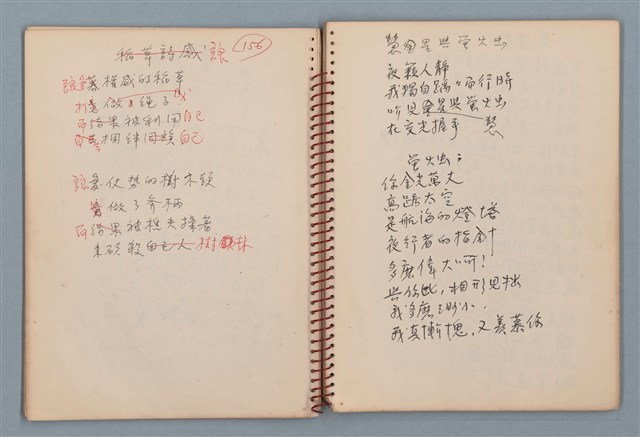 稻草詩感
156
慕權威的稻草
做 繩子
結果被利用自己
綑綁自己
仗勢的樹木頭
當做了斧柄
結果被樵夫擇著
來砍殺自己人樹林
慧星與螢火虫
夜籟人靜
我獨自踽々而行時
听見慧星與螢火虫
在交光握手
螢火虫：
你金光萬丈
高踞太空
是航海的燈塔
夜行者的指針
多麼偉大啊！
與你比，相形見拙
我多麼渺小．
我真慚愧，又羨慕你